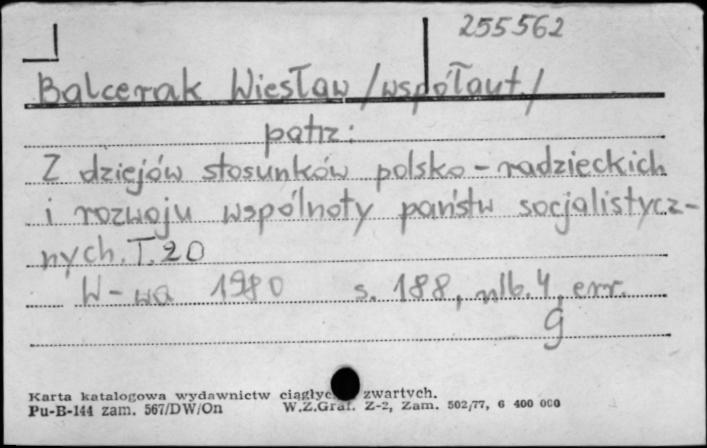 255562
Balcerak Wiesław /współaut/
patrz:
Z dziejów stosunków polsko-radzieckich
i rozwoju wspólnoty państw socjalistycz-
nych. T. 20
W-wa 1980 s. 188, nlb. 4, err.
g
Karta katalogowa wydawnictw zwartych.
Pu-B-144 zam. 567/DW/On W.Z.Graf. Z-2, Zam. 502/77, 6 400 000